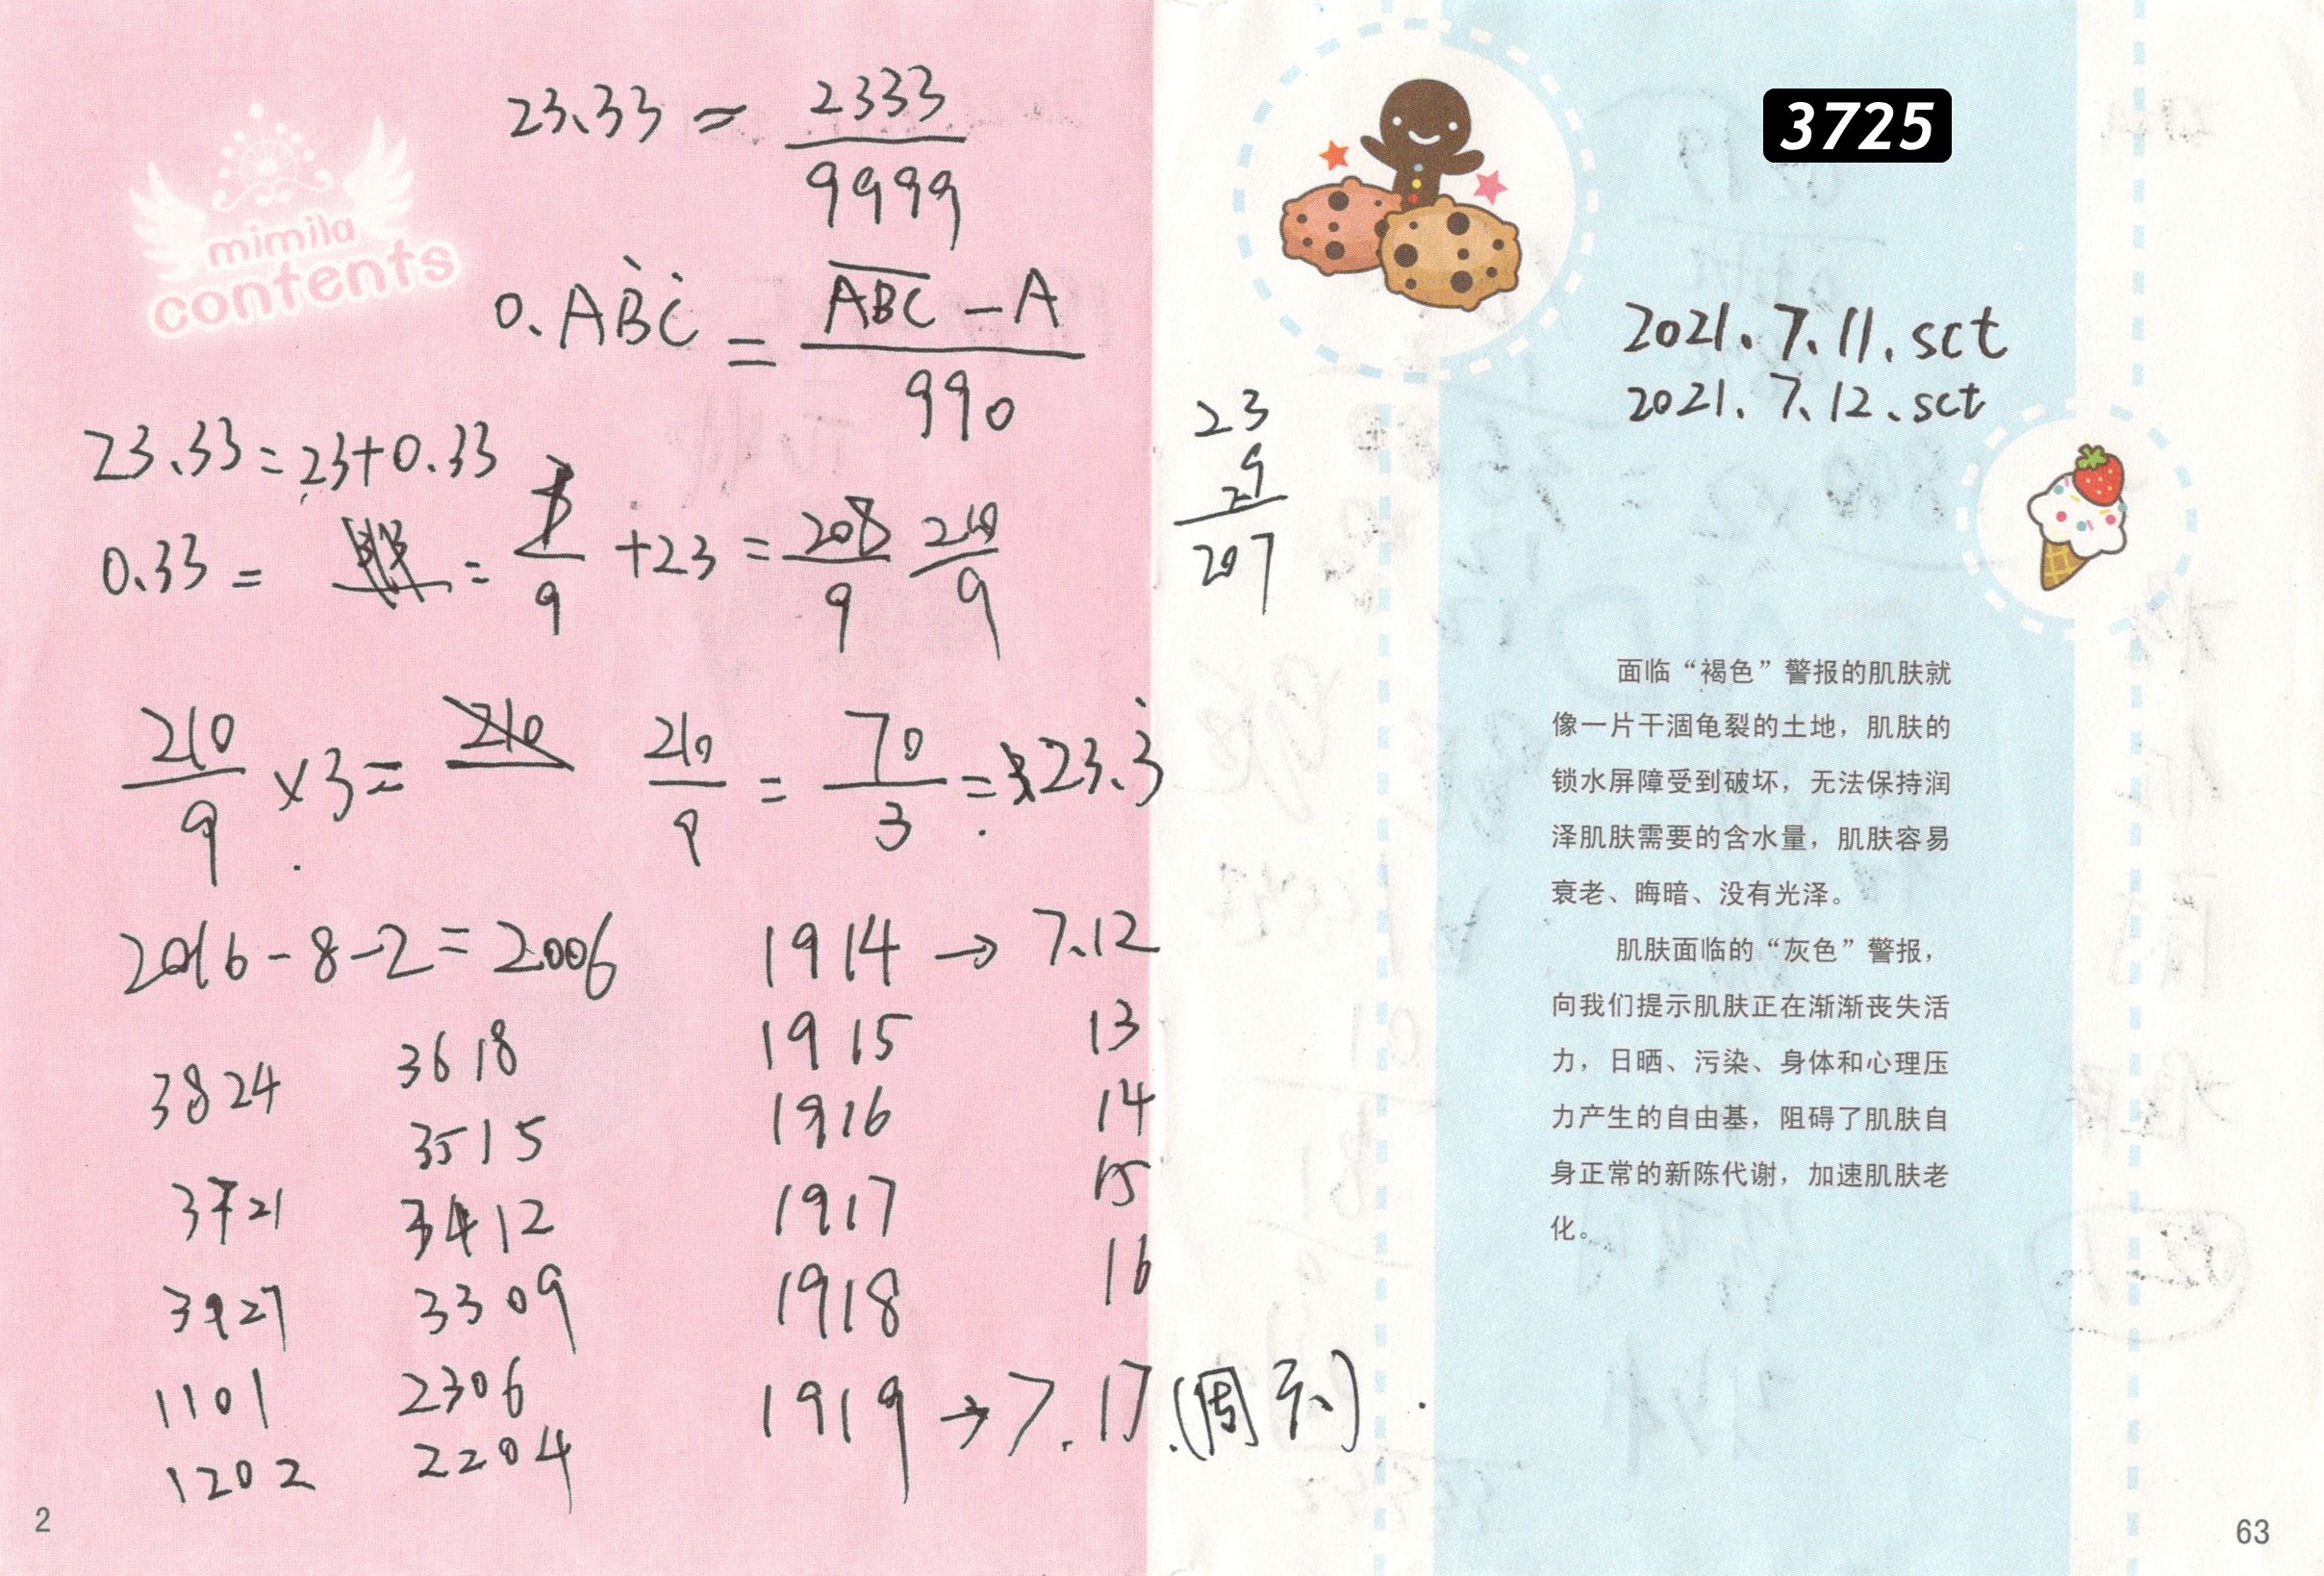 mimila
contents
23.33 = 2333/9999
0.AḂĊ = (A̅B̅C̅ - A)/990
23.33 = 23+0.33
0.33 = = /9 +23 = 208/9 210/9
210/9 ×3 = 210 210/9 = 70/3 = 23.3̇
2016-8-2=2006
3824
3721
3927
1101
1202
3618
3515
3412
3309
2306
2204
1914 → 7.12
1915 13
1916 14
1917 15
1918 16
1919 → 7.17.(周天).
2
3725
2021.7.11.sct
2021.7.12.sct
23
9
207
面临“褐色”警报的肌肤就
像一片干涸龟裂的土地，肌肤的
锁水屏障受到破坏，无法保持润
泽肌肤需要的含水量，肌肤容易
衰老、晦暗、没有光泽。
肌肤面临的“灰色”警报，
向我们提示肌肤正在渐渐丧失活
力，日晒、污染、身体和心理压
力产生的自由基，阻碍了肌肤自
身正常的新陈代谢，加速肌肤老
化。
63